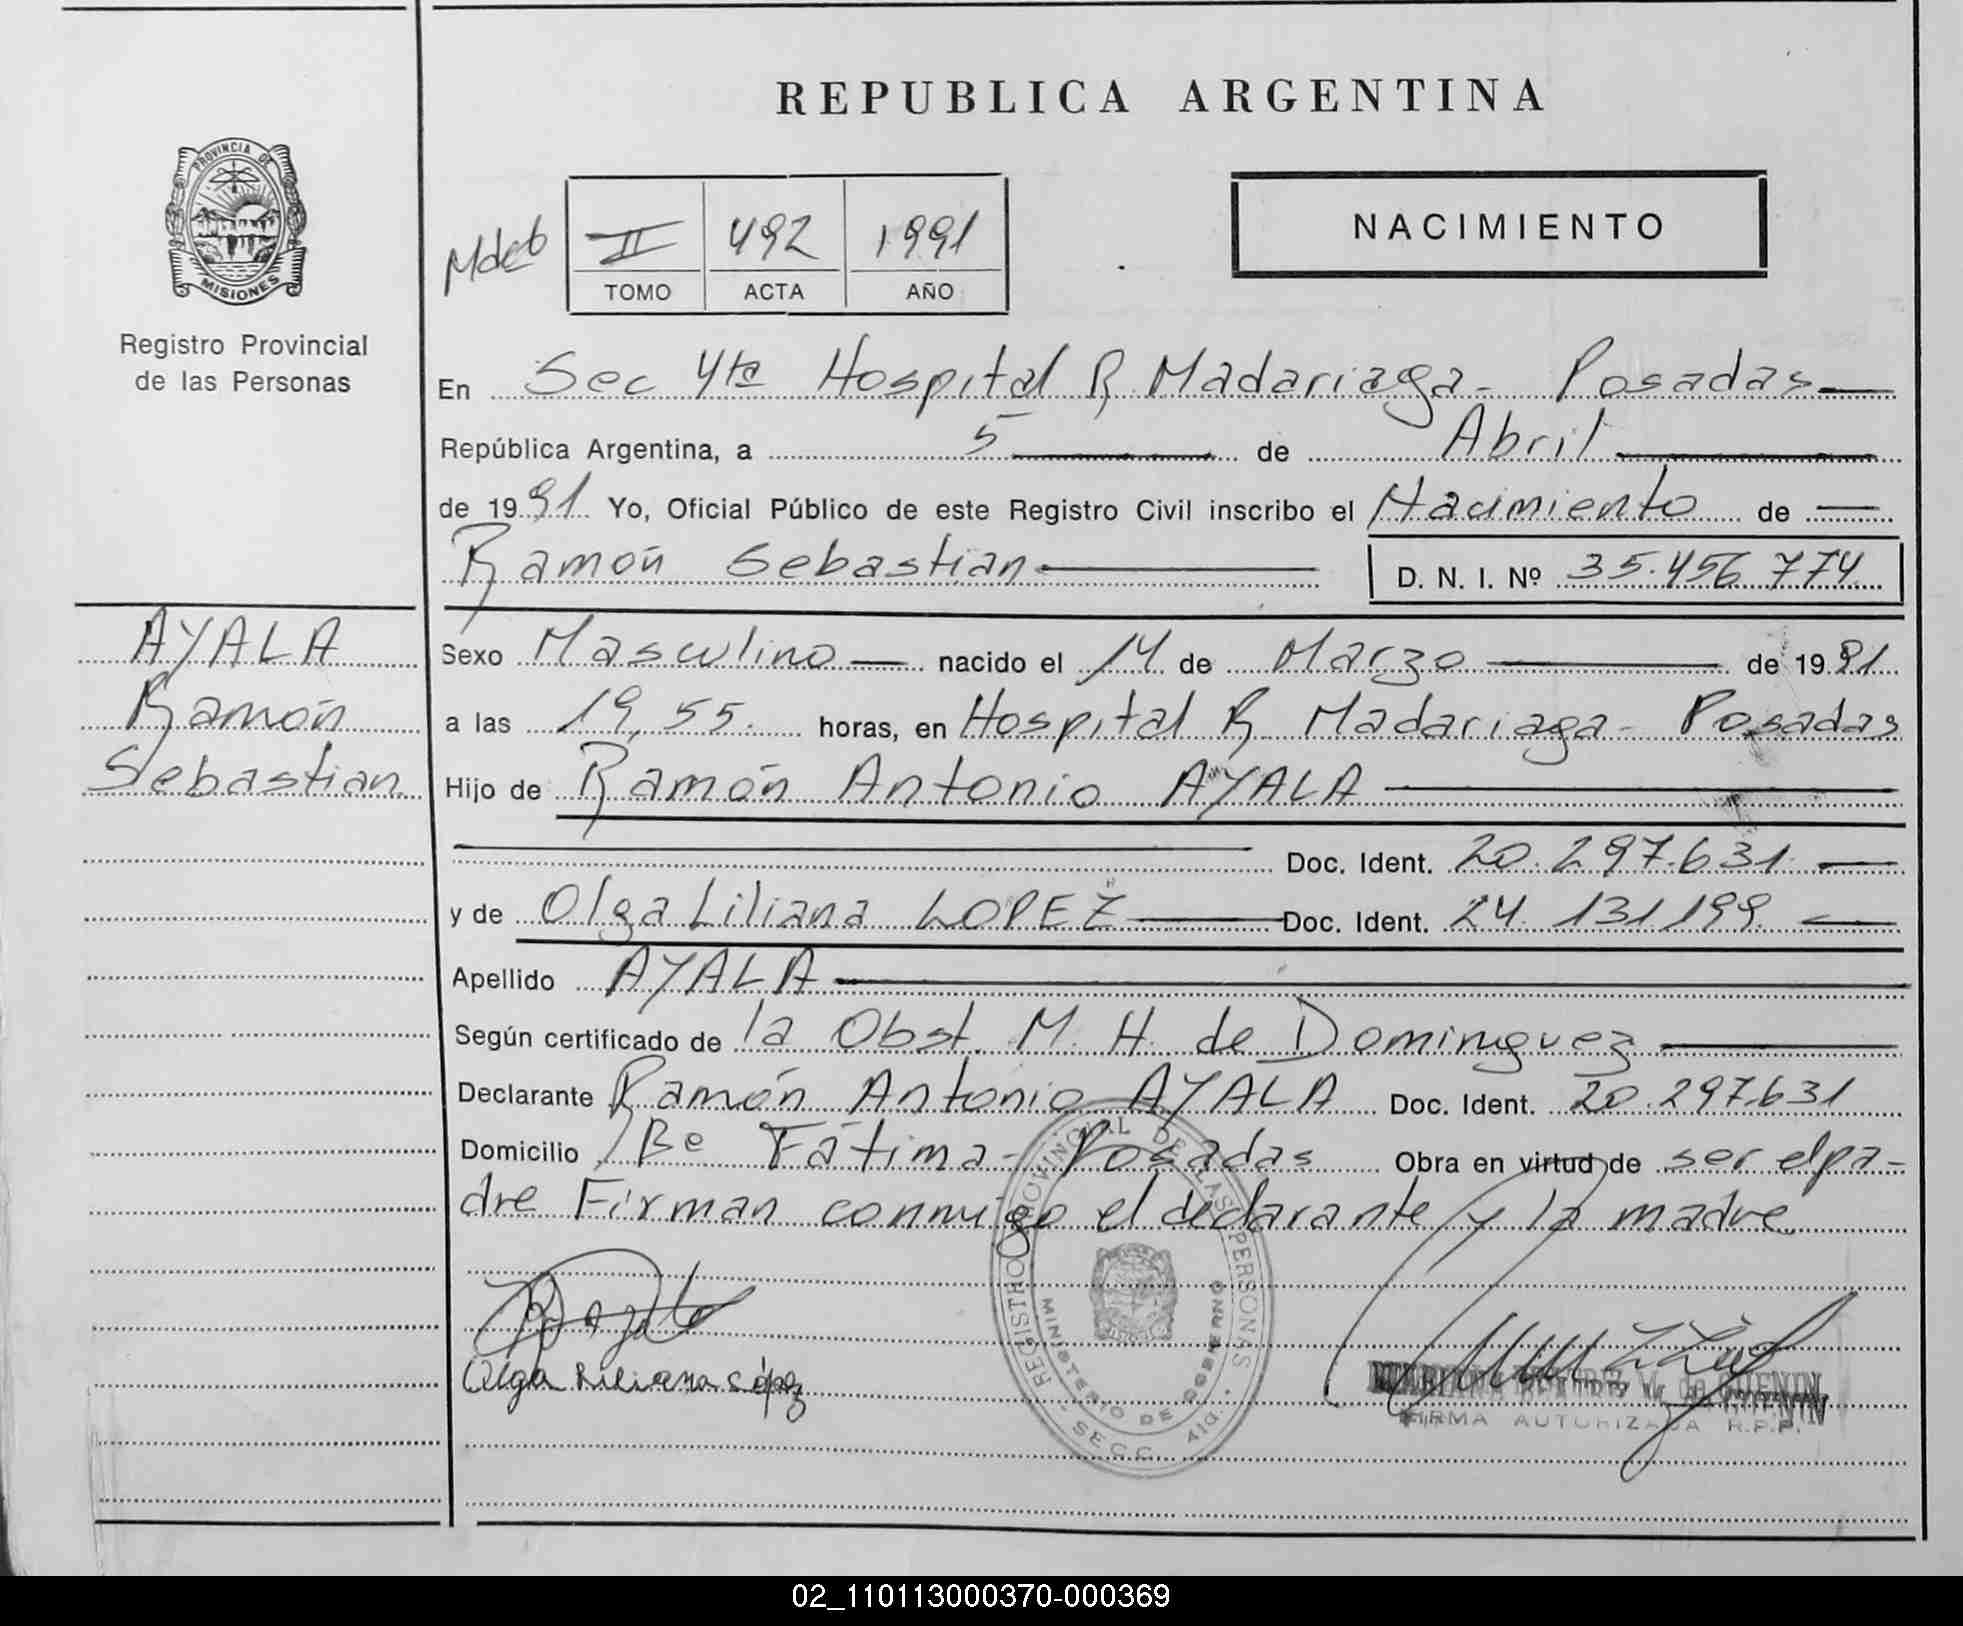 REPUBLICA ARGENTINA
PROVINCIA DE MISIONES
Registro Provincial
de las Personas
II 492 1991
TOMO ACTA AÑO
NACIMIENTO
En Sec 4ta Hospital R. Madariaga - Posadas
República Argentina, a 5 de Abril
de 1991 Yo, Oficial Público de este Registro Civil inscribo el Nacimiento de
Ramón Sebastian D. N. I. Nº 35.456.774
AYALA
Ramón
Sebastian
Sexo Masculino nacido el 14 de Marzo de 1991
a las 19,55. horas, en Hospital R. Madariaga - Posadas
Hijo de Ramón Antonio AYALA
Doc. Ident. 20.297.631
y de Olga Liliana LOPEZ Doc. Ident. 24.131.199
Apellido AYALA
Según certificado de la Obst. M. H. de Dominguez
Declarante Ramón Antonio AYALA Doc. Ident. 20.297.631
Domicilio Be Fátima - Posadas Obra en virtud de ser el pa-
dre Firman conmigo el declarante y la madre
REGISTRO PROVINCIAL DE LAS PERSONAS
MINISTERIO DE GOBIERNO
SECC. 4ta.
Olga Liliana López
FIRMA AUTORIZADA R.P.P.
02_110113000370-000369